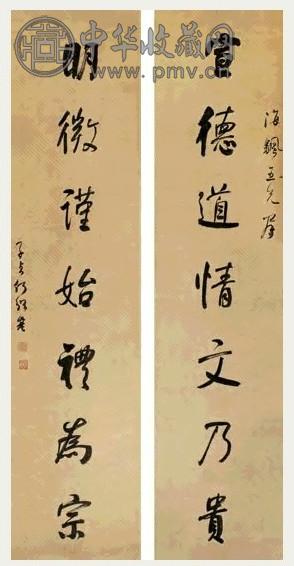 中华收藏网
www.pmv.cn
海颿五兄
宣德道情文乃貴
明微謹始禮為宗
子貞何紹基